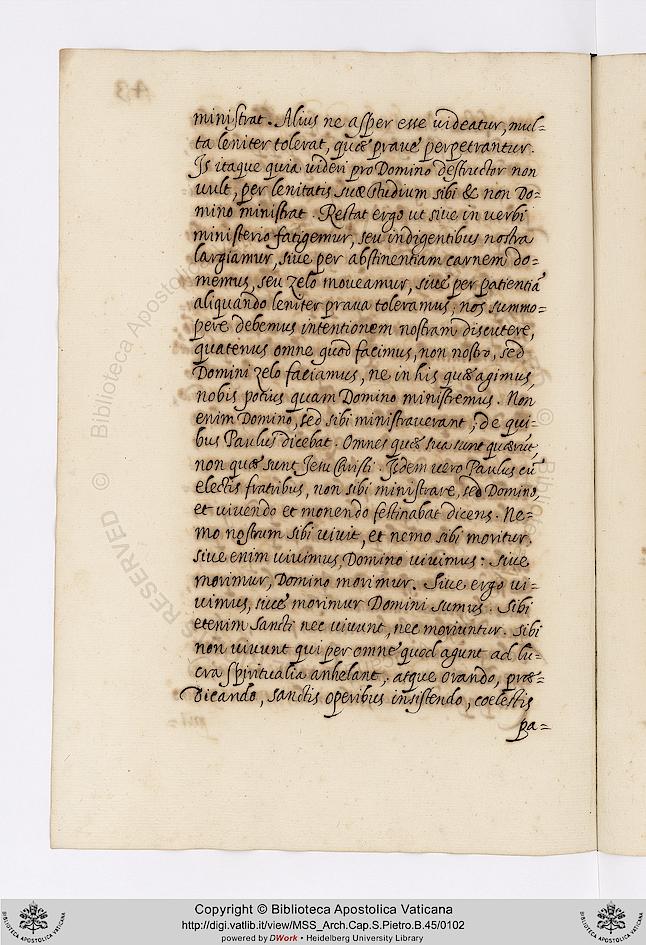 ministrat. Alius ne asper esse videatur, mul=
ta leniter tolerat, quæ praue perpetrantur.
Js itaque quia uideri pro Domino destructor non
vult, per lenitatis suæ studium sibi & non Do=
mino ministrat. Restat ergo ut siue in uerbi
ministerio fatigemur, seu indigentibus nostra
largiamur, siue per abstinentiam carnem do=
memus, seu zelo moueamur, siue per patientiã
aliquando leniter praua toleramus, nos summo=
pere debemus intentionem nostram discutere,
quatenus omne quod facimus, non nostro, sed
Domini zelo faciamus, ne in his quæ agimus,
nobis potius quam Domino ministremus. Non
enim Domino, sed sibi ministrauerant, de qui=
bus Paulus dicebat. Omnes quæ sua sunt quærũt,
non quæ sunt Jesu Christi. Jsdem vero Paulus cũ
electis fratribus, non sibi ministrare, sed Domino,
et viuendo et monendo festinabat dicens. Ne=
mo nostrum sibi vivit, et nemo sibi moritur.
Siue enim viuimus, Domino vivimus: Siue
morimur, Domino morimur. Siue ergo vi=
uimus, siue morimur Domini sumus. Sibi
etenim Sancti nec viuunt, nec moriuntur. Sibi
non viuunt qui per omne quod agunt ad lu=
cra spiritualia anhelant, atque orando, præ=
dicando, sanctis operibus insistendo, coelestis
pa=
© Biblioteca Apostolica
RESERVED
Copyright © Biblioteca Apostolica Vaticana
http://digi.vatlib.it/view/MSS_Arch.Cap.S.Pietro.B.45/0102
powered by DWork • Heidelberg University Library
BIBLIOTECA APOSTOLICA VATICANA
BIBLIOTECA APOSTOLICA VATICANA